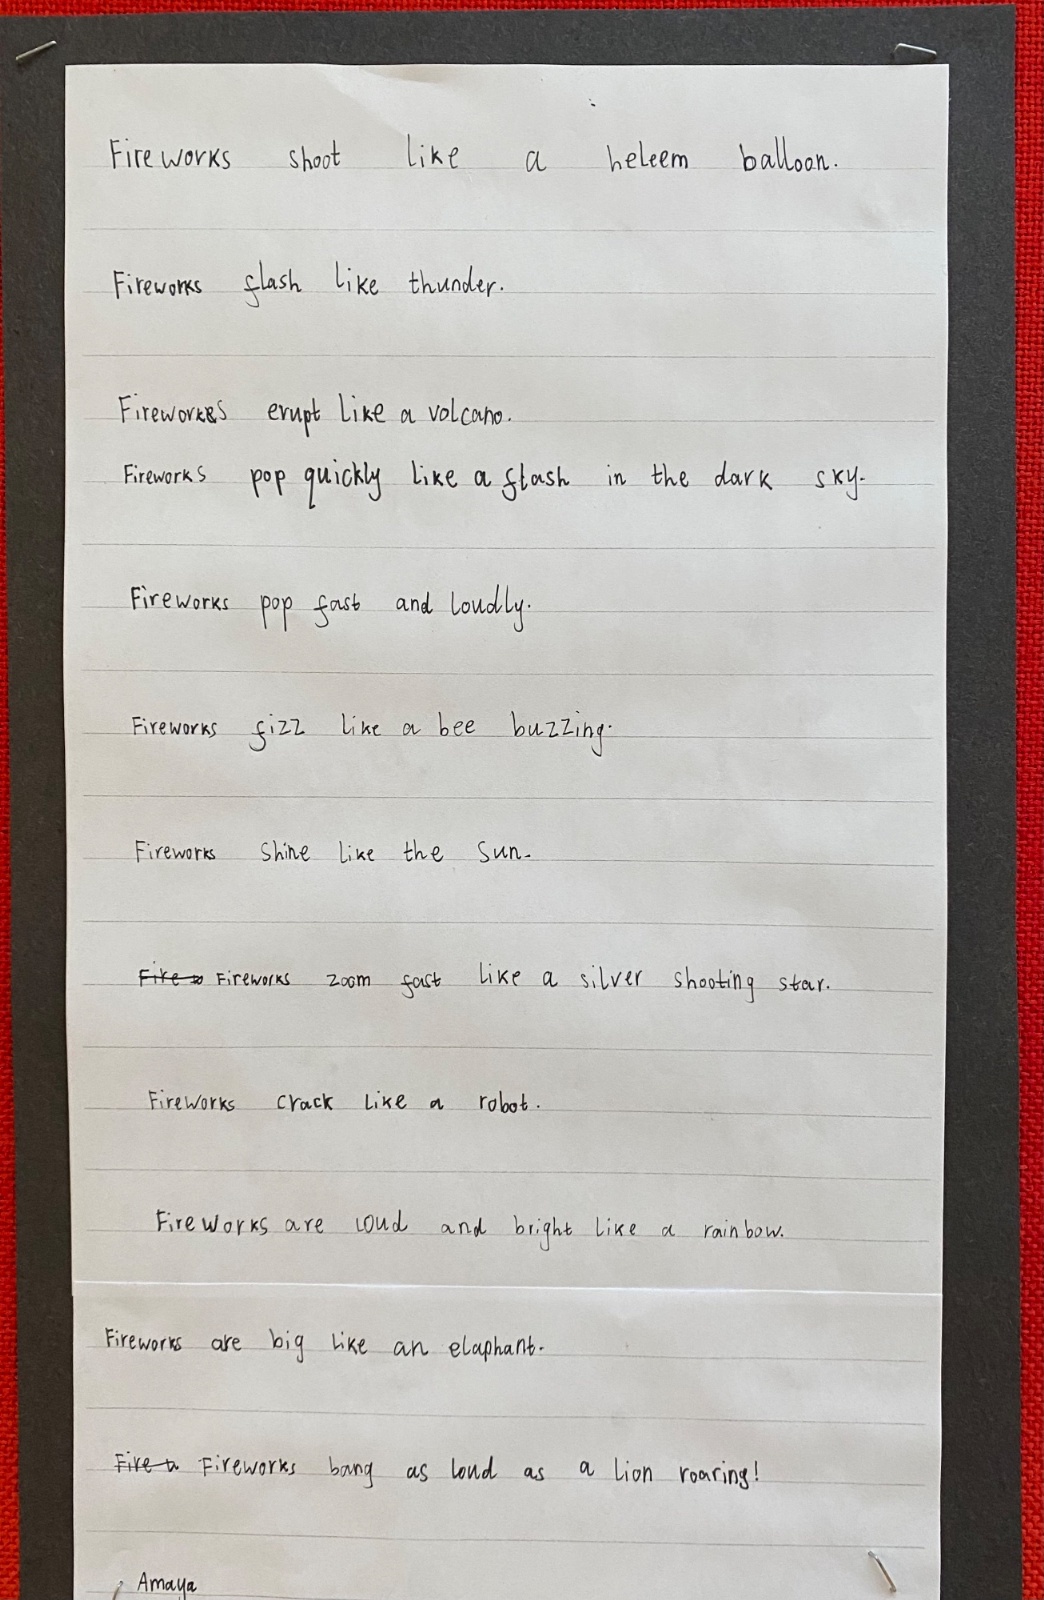 Fireworks shoot like a heleem balloon.
Fireworks flash like thunder.
Fireworks erupt like a volcano.
Fireworks pop quickly like a flash in the dark sky.
Fireworks pop fast and loudly.
Fireworks fizz like a bee buzzing.
Fireworks shine like the sun.
Fire w Fireworks zoom fast like a silver shooting star.
Fireworks crack like a robot.
Fireworks are loud and bright like a rainbow.
Fireworks are big like an elaphant.
Fire w Fireworks bang as loud as a lion roaring!
Amaya